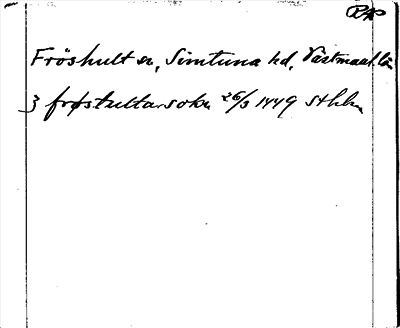 RAP
Fröshult sn, Simtuna hd, Västmanl. län
ȝ frøstultasokn 26/3 1449 Sthlm